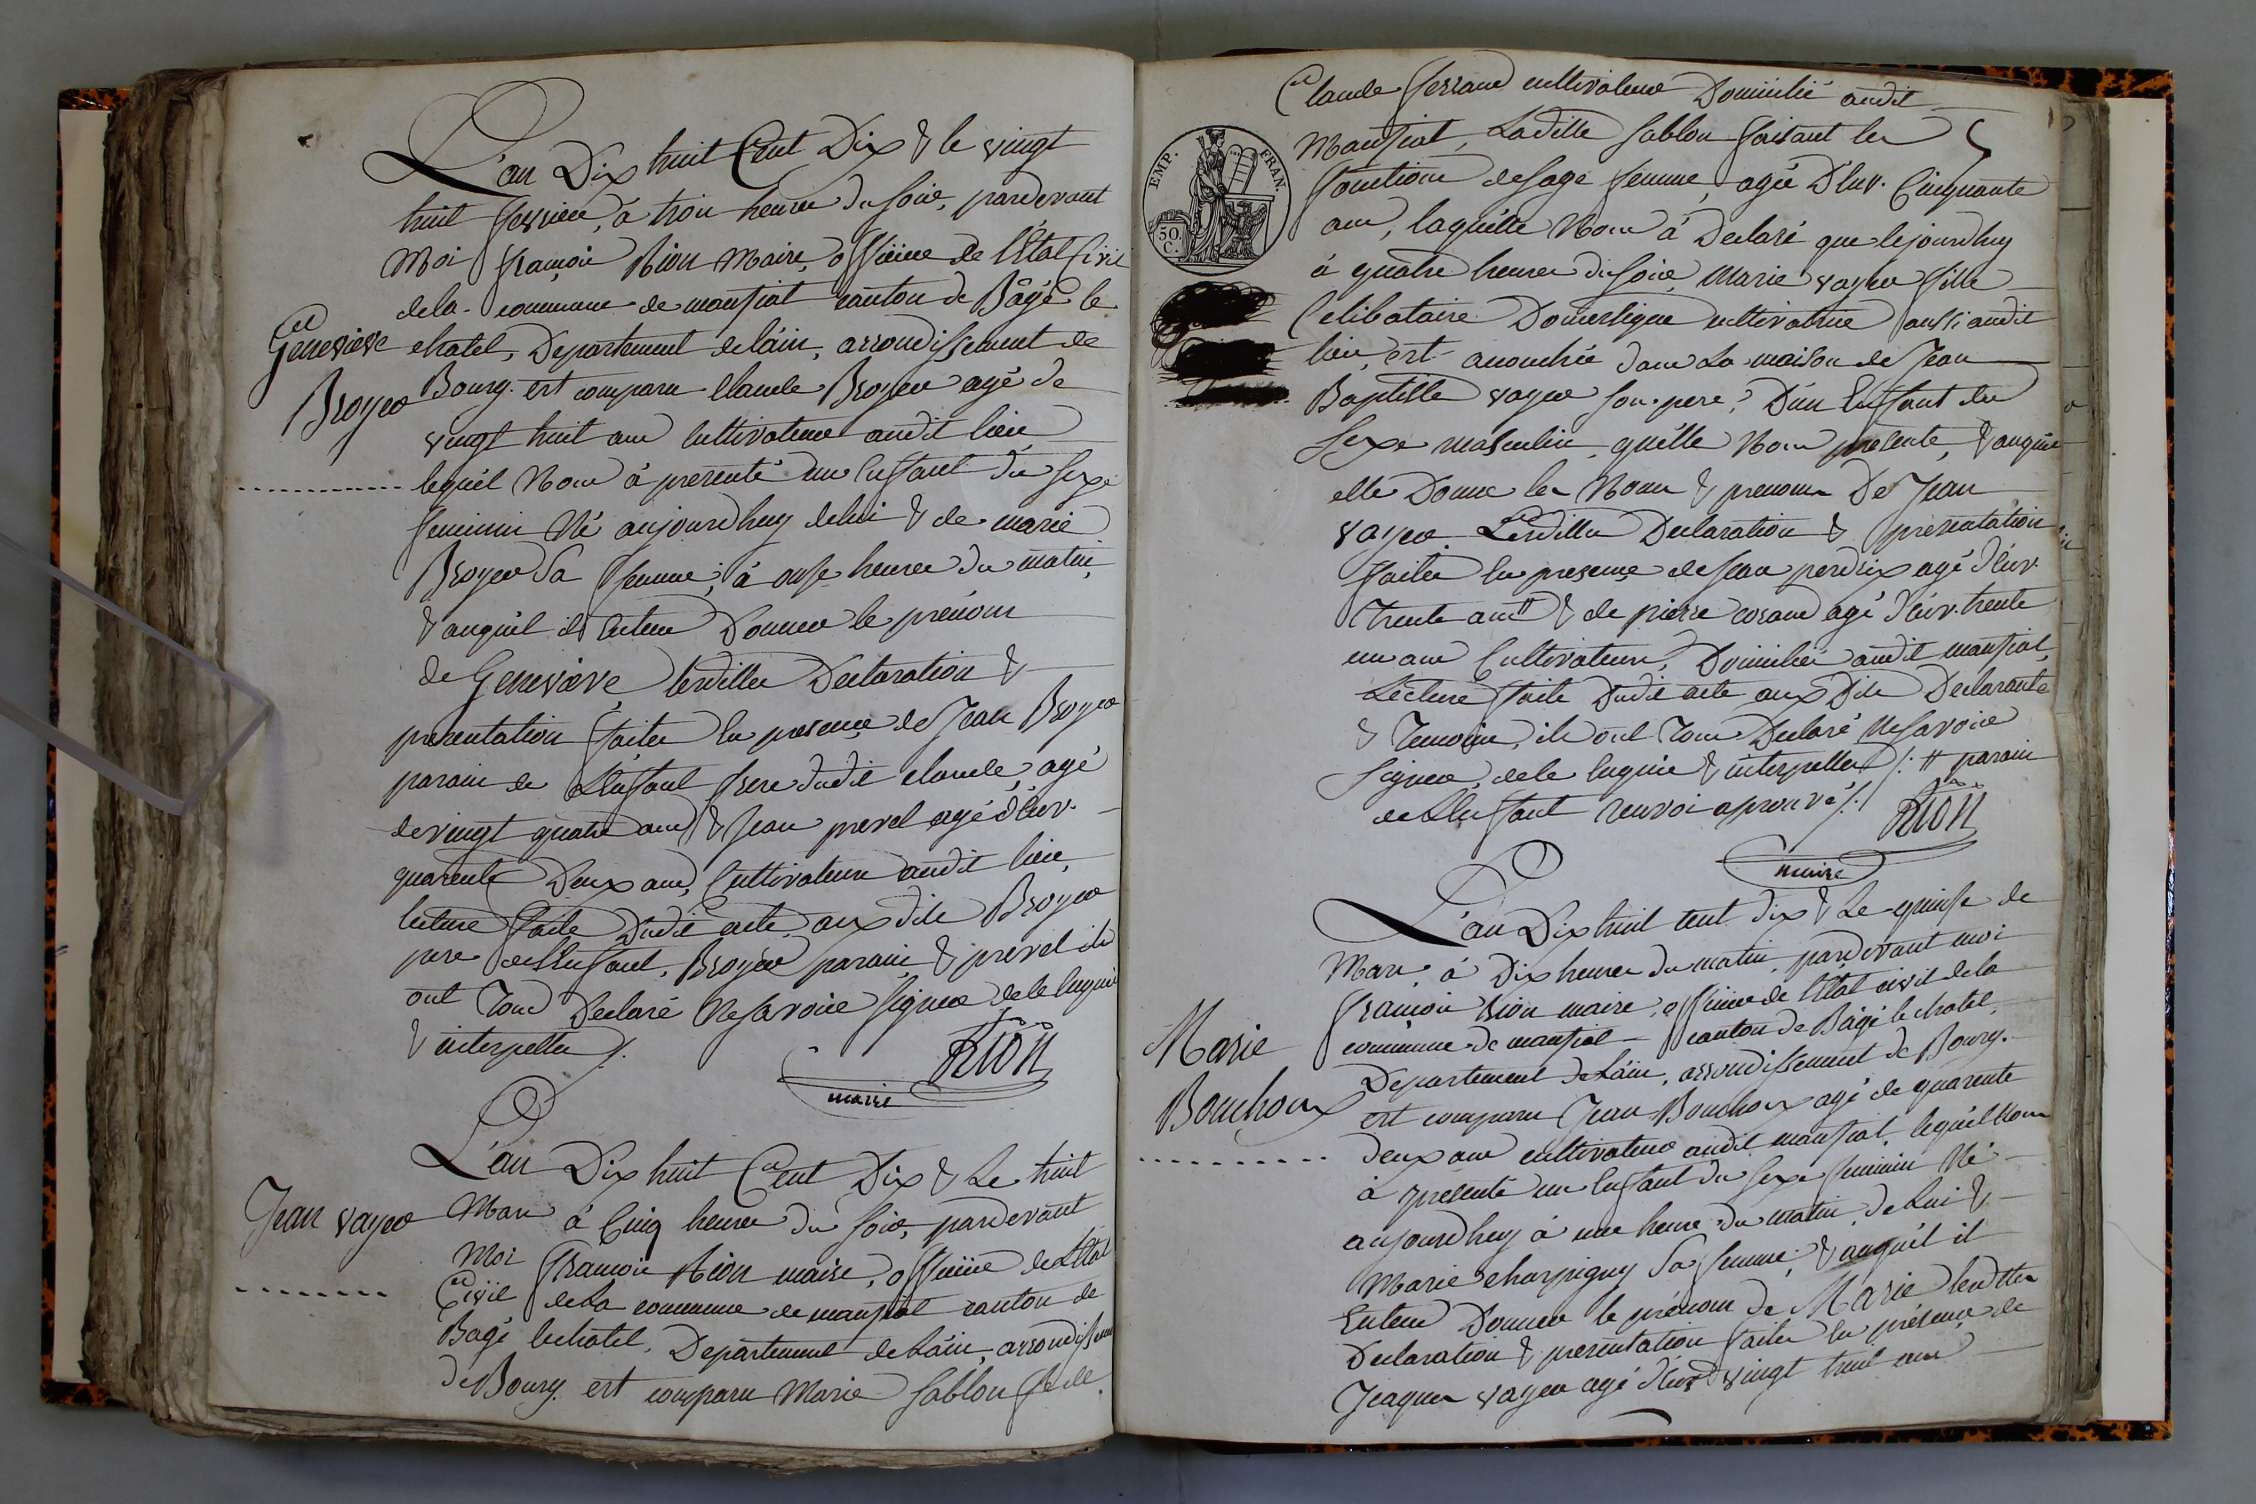 L'an Dix huit Cent Dix & le vingt
huit fevrier, à trois heures du soir, pardevant
Moi françois Rion Maire, officier de l'État Civil
de la commune de mansiat canton de Bâgé le
Genevieve
Broyer
chatel, Departement de láin, arrondissement de
Bourg. est comparu Claude Broyer agé de
vingt huit ans Cultivateur audit lieu,
lequél Nous à presenté un Enfant du sexe
feminin Né aujourdhuy de lui & de marie
Broyer Sa femme, à onse heures du matin,
& auquél il Entend Donner le prénom
de Genevieve, lesdittes Declaration &
presentation faites En presence de Jean Broyer
parain de L'Enfant frere dudit claude, agé
de vingt quatre ans, & Jean prevel agé d'env.
quarente Deux ans, Cultivateurs audit lieu,
lecture faite Dudit acte, aux dits Broyer
pere de L'Enfant, Broyer parain & prevel ils
ont Tous Declaré Ne savoir signer de ce Enquis
& interpellés /.
Rion
maire
Jean vayer
L'an Dix huit Cent Dix & Le huit
Mars à Cinq heures du soir, pardevant
Moi françois Rion maire, officier de L'Etat
Civil de La commune de mansiat canton de
Bagé le chatel, Departement de Láin, arrondissem
de Bourg. est comparu Marie Sablon fe de
Claude ferrand cultivateur Domicilié audit
EMP. FRAN.
50 C.
Mansiat, Laditte Sablon faisant les
fonctions de sage femme, agée D'env. Cinquante
ans, laquélle Nous à Declaré que cejourdhuy
à quatre heures du soir, Marie vayer fille
Celibataire Domestique cultivatrice aussi audit
lieu, est accouchée dans La maison de Jean
Baptiste vayer son pere, D'un Enfant du
Sexe masculin, qu'elle Nous presente, & auquél
elle Donne les Noms & prenoms De Jean
vayer. Lesdittes Declaration & presentation
faites En presence de Jean perdrix agé d'env.
Trente ans # & de pierre corand agé d'env. trente
un ans Cultivateurs, Domiciliés audit mansiat,
Lecture faite Dudit acte aux Dits Declarante
& Temoins, ils ont Tous Declaré Ne savoir
signer, de ce Enquis & interpellés /: # parain
de L'Enfant renvoi aprouvé /:/
Rion
maire
Marie
Bouchoux
L'an Dix huit cent dix & Le quinse de
Mars, à Dix heures du matin, pardevant moi
françois Rion maire, officier de l'état civil de la
commune de mansiat canton de Bâgé le chatel,
Departement de Láin, arrondissement de Bourg.
est comparu Jean Bouchoux agé de quarente
deux ans cultivateur audit mansiat, lequél Nous
à presenté un Enfant du sexe feminin Né
aujourdhuy à une heure du matin, de Lui &
Marie charpigny Sa femme, & auquél il
Entend Donner le prénom de Marie lesdittes
Declaration & presentation faites En présence de
Jacques vayer agé d'env. vingt huit ans